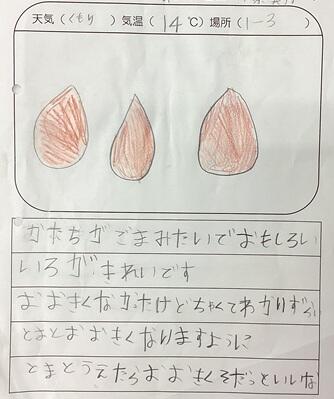 天気（くもり）気温（14℃）場所（1-3）
かたちがごまみたいでおもしろい
いろがきれいです
おおきくなかったけどちゃくてわかりずらい
とまとおおきくなりますように
とまとうえたらおおきくそだっといいな